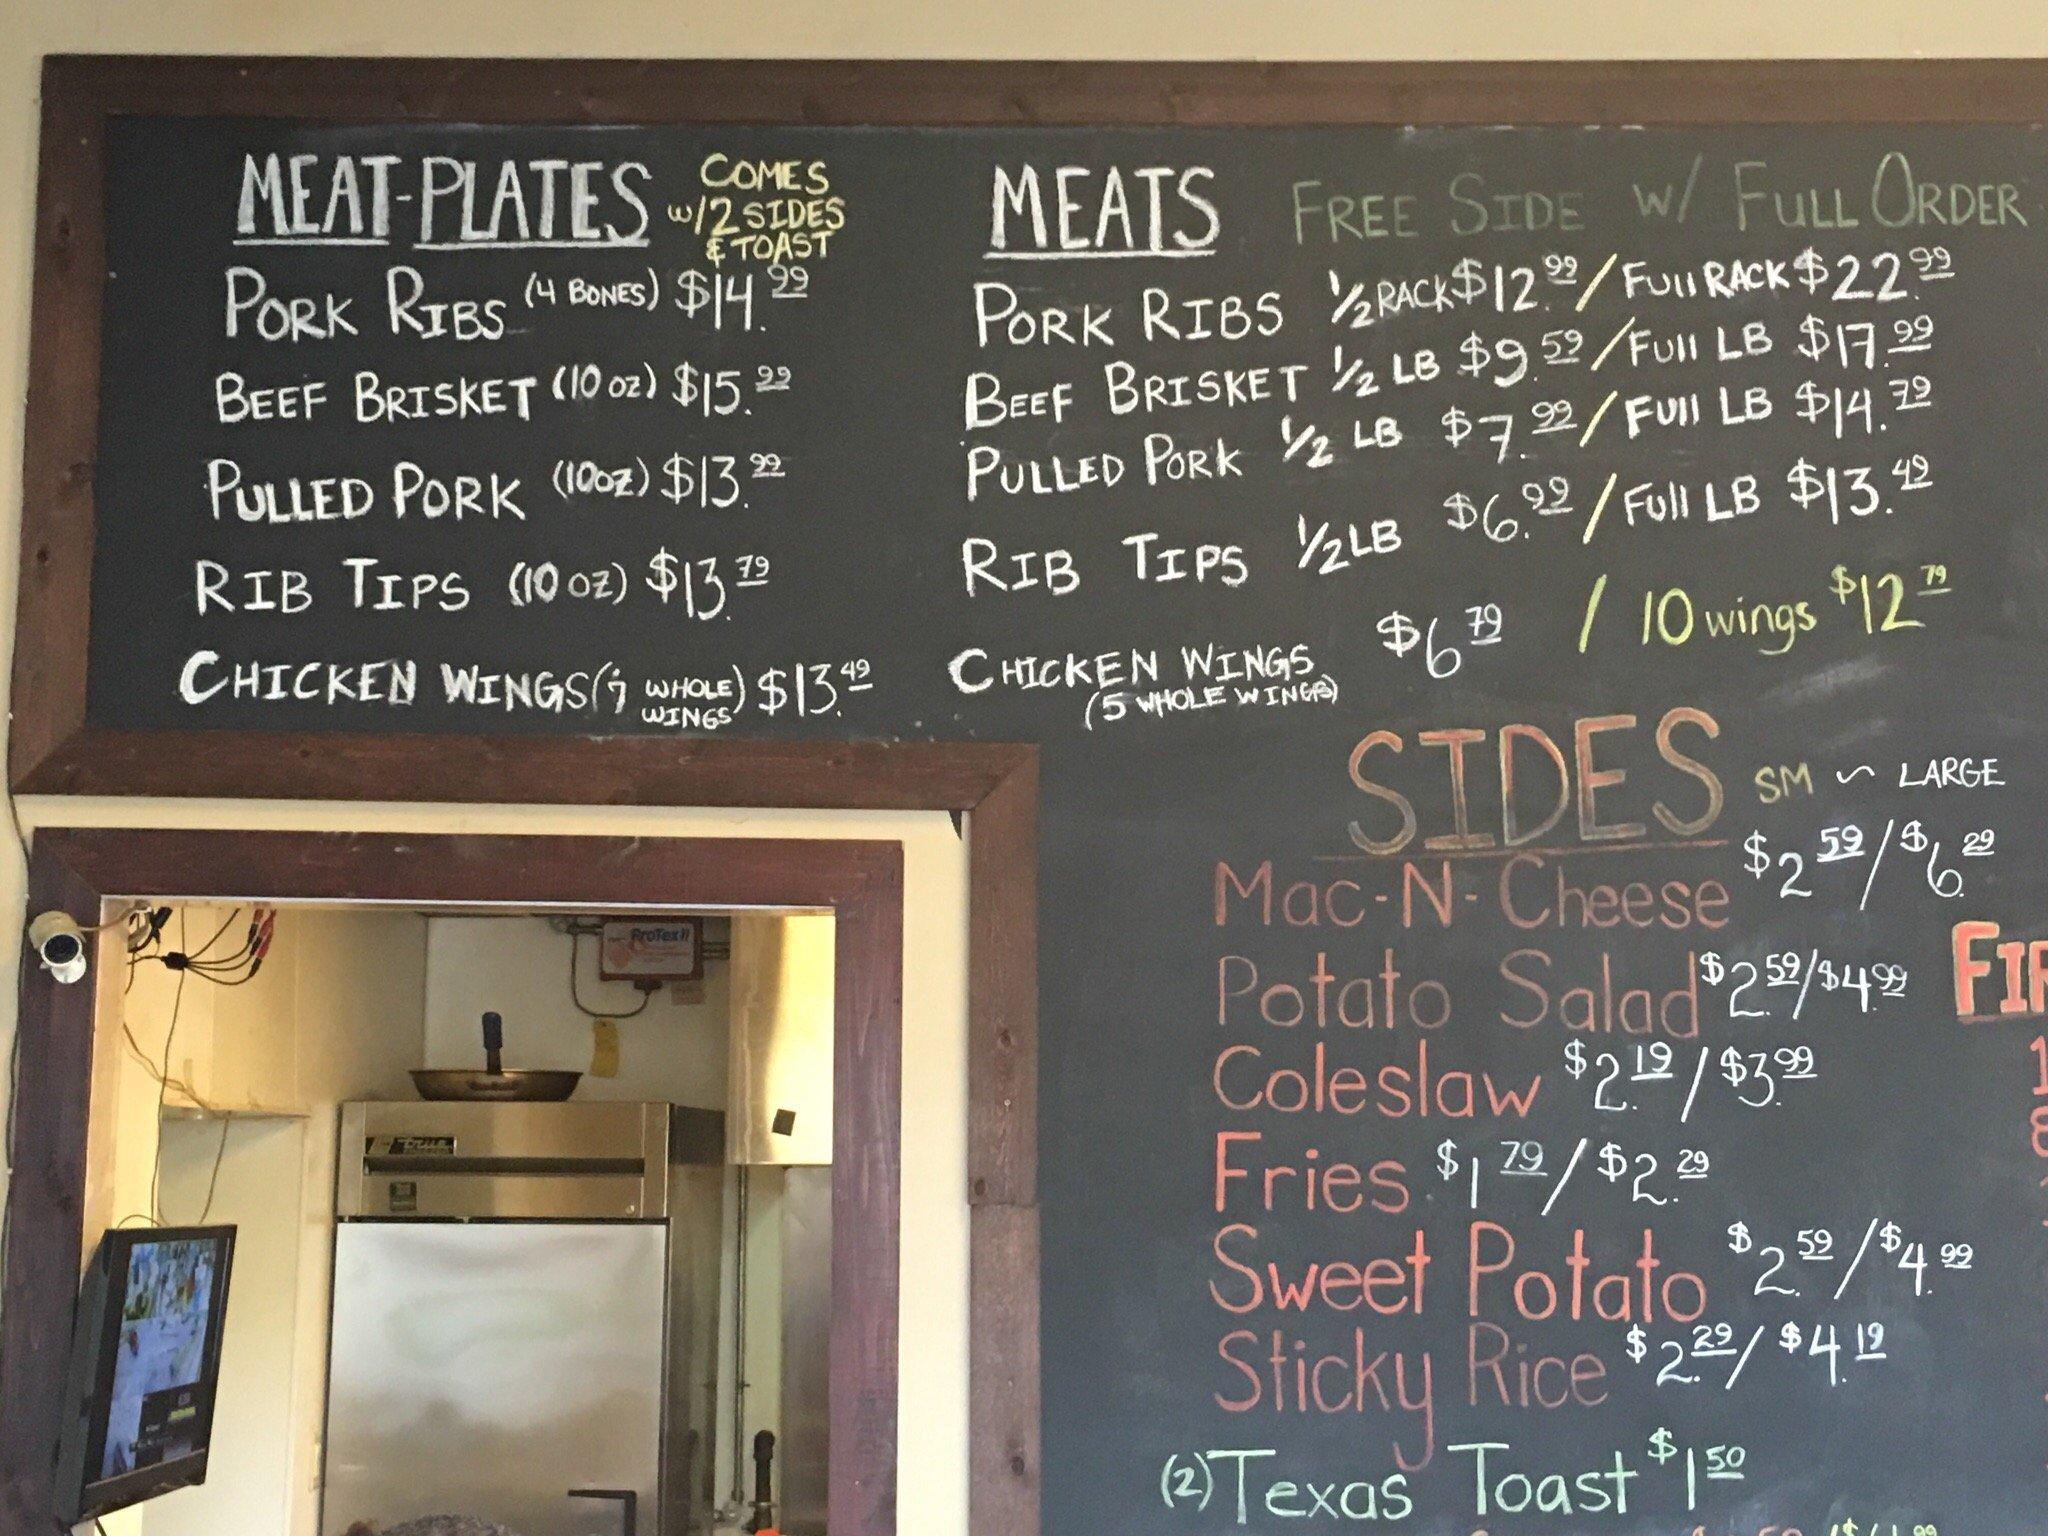 MEAT-PLATES COMES w/2 SIDES & TOAST
PORK RIBS (4 BONES) $14.99
BEEF BRISKET (10 oz) $15.99
PULLED PORK (10oz) $13.99
RIB TIPS (10 oz) $13.79
CHICKEN WINGS (7 WHOLE WINGS) $13.49
MEATS FREE SIDE w/ FULL ORDER
PORK RIBS 1/2 RACK $12.99 / Full RACK $22.99
BEEF BRISKET 1/2 LB $9.59 / Full LB $17.99
PULLED PORK 1/2 LB $7.99 / Full LB $14.79
RIB TIPS 1/2 LB $6.99 / Full LB $13.49
CHICKEN WINGS $6.79 / 10 wings $12.79
(5 WHOLE WINGS)
SIDES SM ~ LARGE
Mac-N-Cheese $2.59/$6.29
Potato Salad $2.59/$4.99
Coleslaw $2.19/$3.99
Fries $1.79/$2.29
Sweet Potato $2.59/$4.99
Sticky Rice $2.29/$4.19
(2) Texas Toast $1.50
FI
ProTex II
True